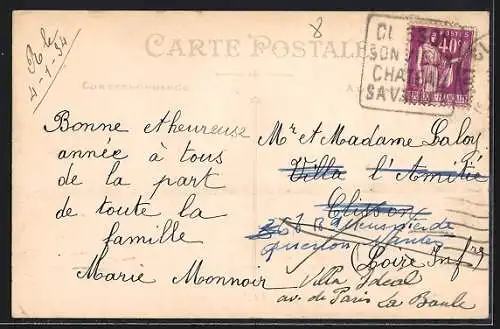 Rle
4-1-34
8
CARTE POSTALE
CORRESPONDANCE
POSTES
40c
SON
CHATEAU
SA
Bonne et heureuse
année à tous
de la part
de toute la
famille
Marie Monnoir
Mr et Madame Laloy
Villa l'Amitié
Clisson
Nantes
(Loire Infre)
Villa Ideal
av. de Paris La Baule